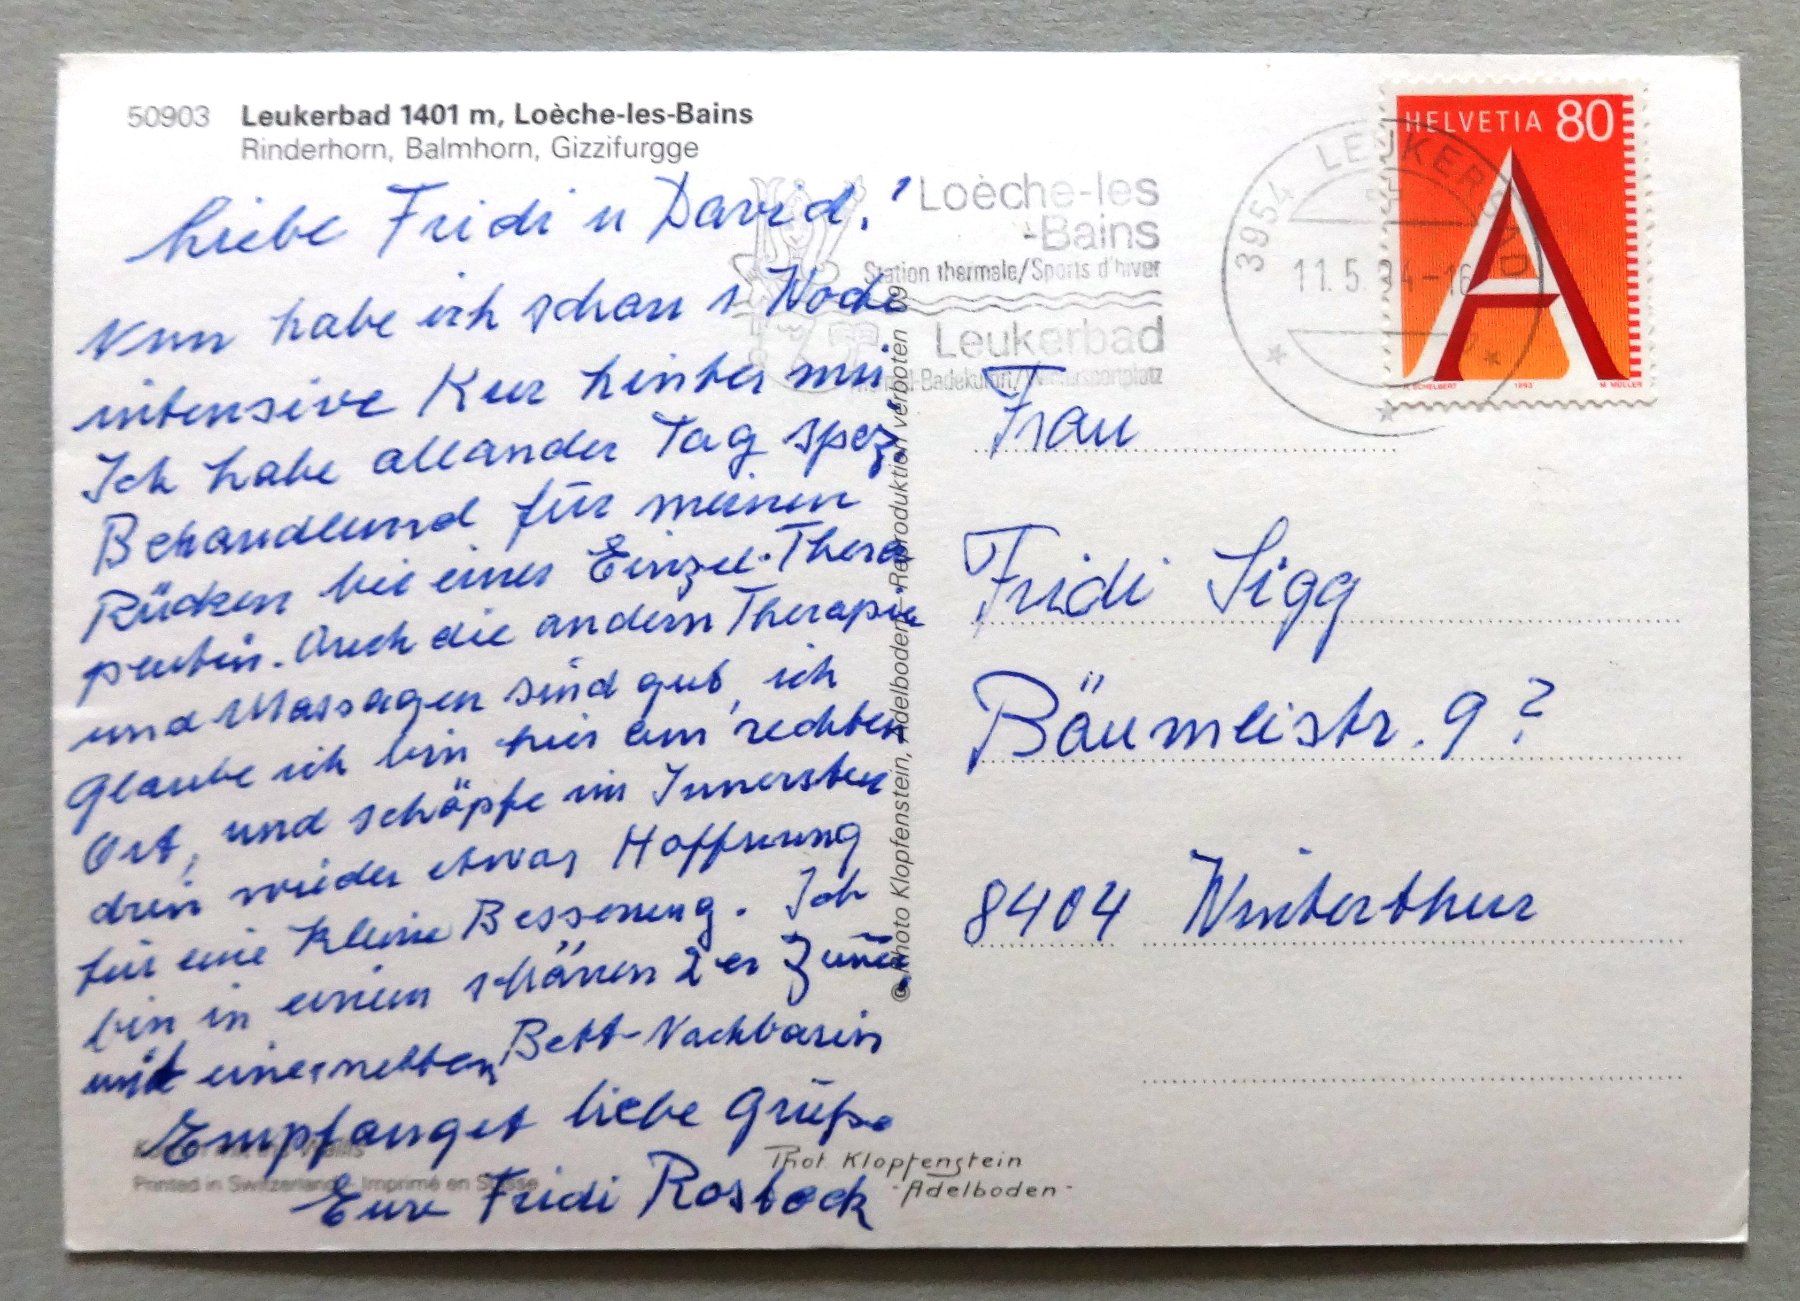 50903 Leukerbad 1401 m, Loèche-les-Bains
Rinderhorn, Balmhorn, Gizzifurgge
Liebe Fridi u David!
Nun habe ich schon 1 Woche
intensive Kur hinter mir.
Ich habe allander Tag spez.
Behandlund für meinen
Rücken bei einer Einzel-Thera
peutin. Auch die andern Therapie
und Massagen sind gut, ich
Glaube ich bin hier am rechten
Ort, und schöpfe im Innersten
drin wieder etwas Hoffnung
für eine kleine Besserung. Ich
bin in einem schönen 2er Zimmer
mit einer netten Bett-Nachbarin
Empfanget liebe Grüße
Eure Fridi Rosbock
Printed in Switzerland - Imprimé en Suisse
Phot. Klopfenstein
- Adelboden -
© Photo Klopfenstein, Adelboden - Reproduktion verboten 09
Loèche-les
-Bains
Station thermale/Sports d'hiver
Leukerbad
Thermal-Badekurort/Wintersportplatz
3954 LEUKERBAD
11.5.94-16
HELVETIA 80
A
1993 M. MÜLLER
Frau
Fridi Sigg
Bäumlistr. 9?
8404 Winterthur